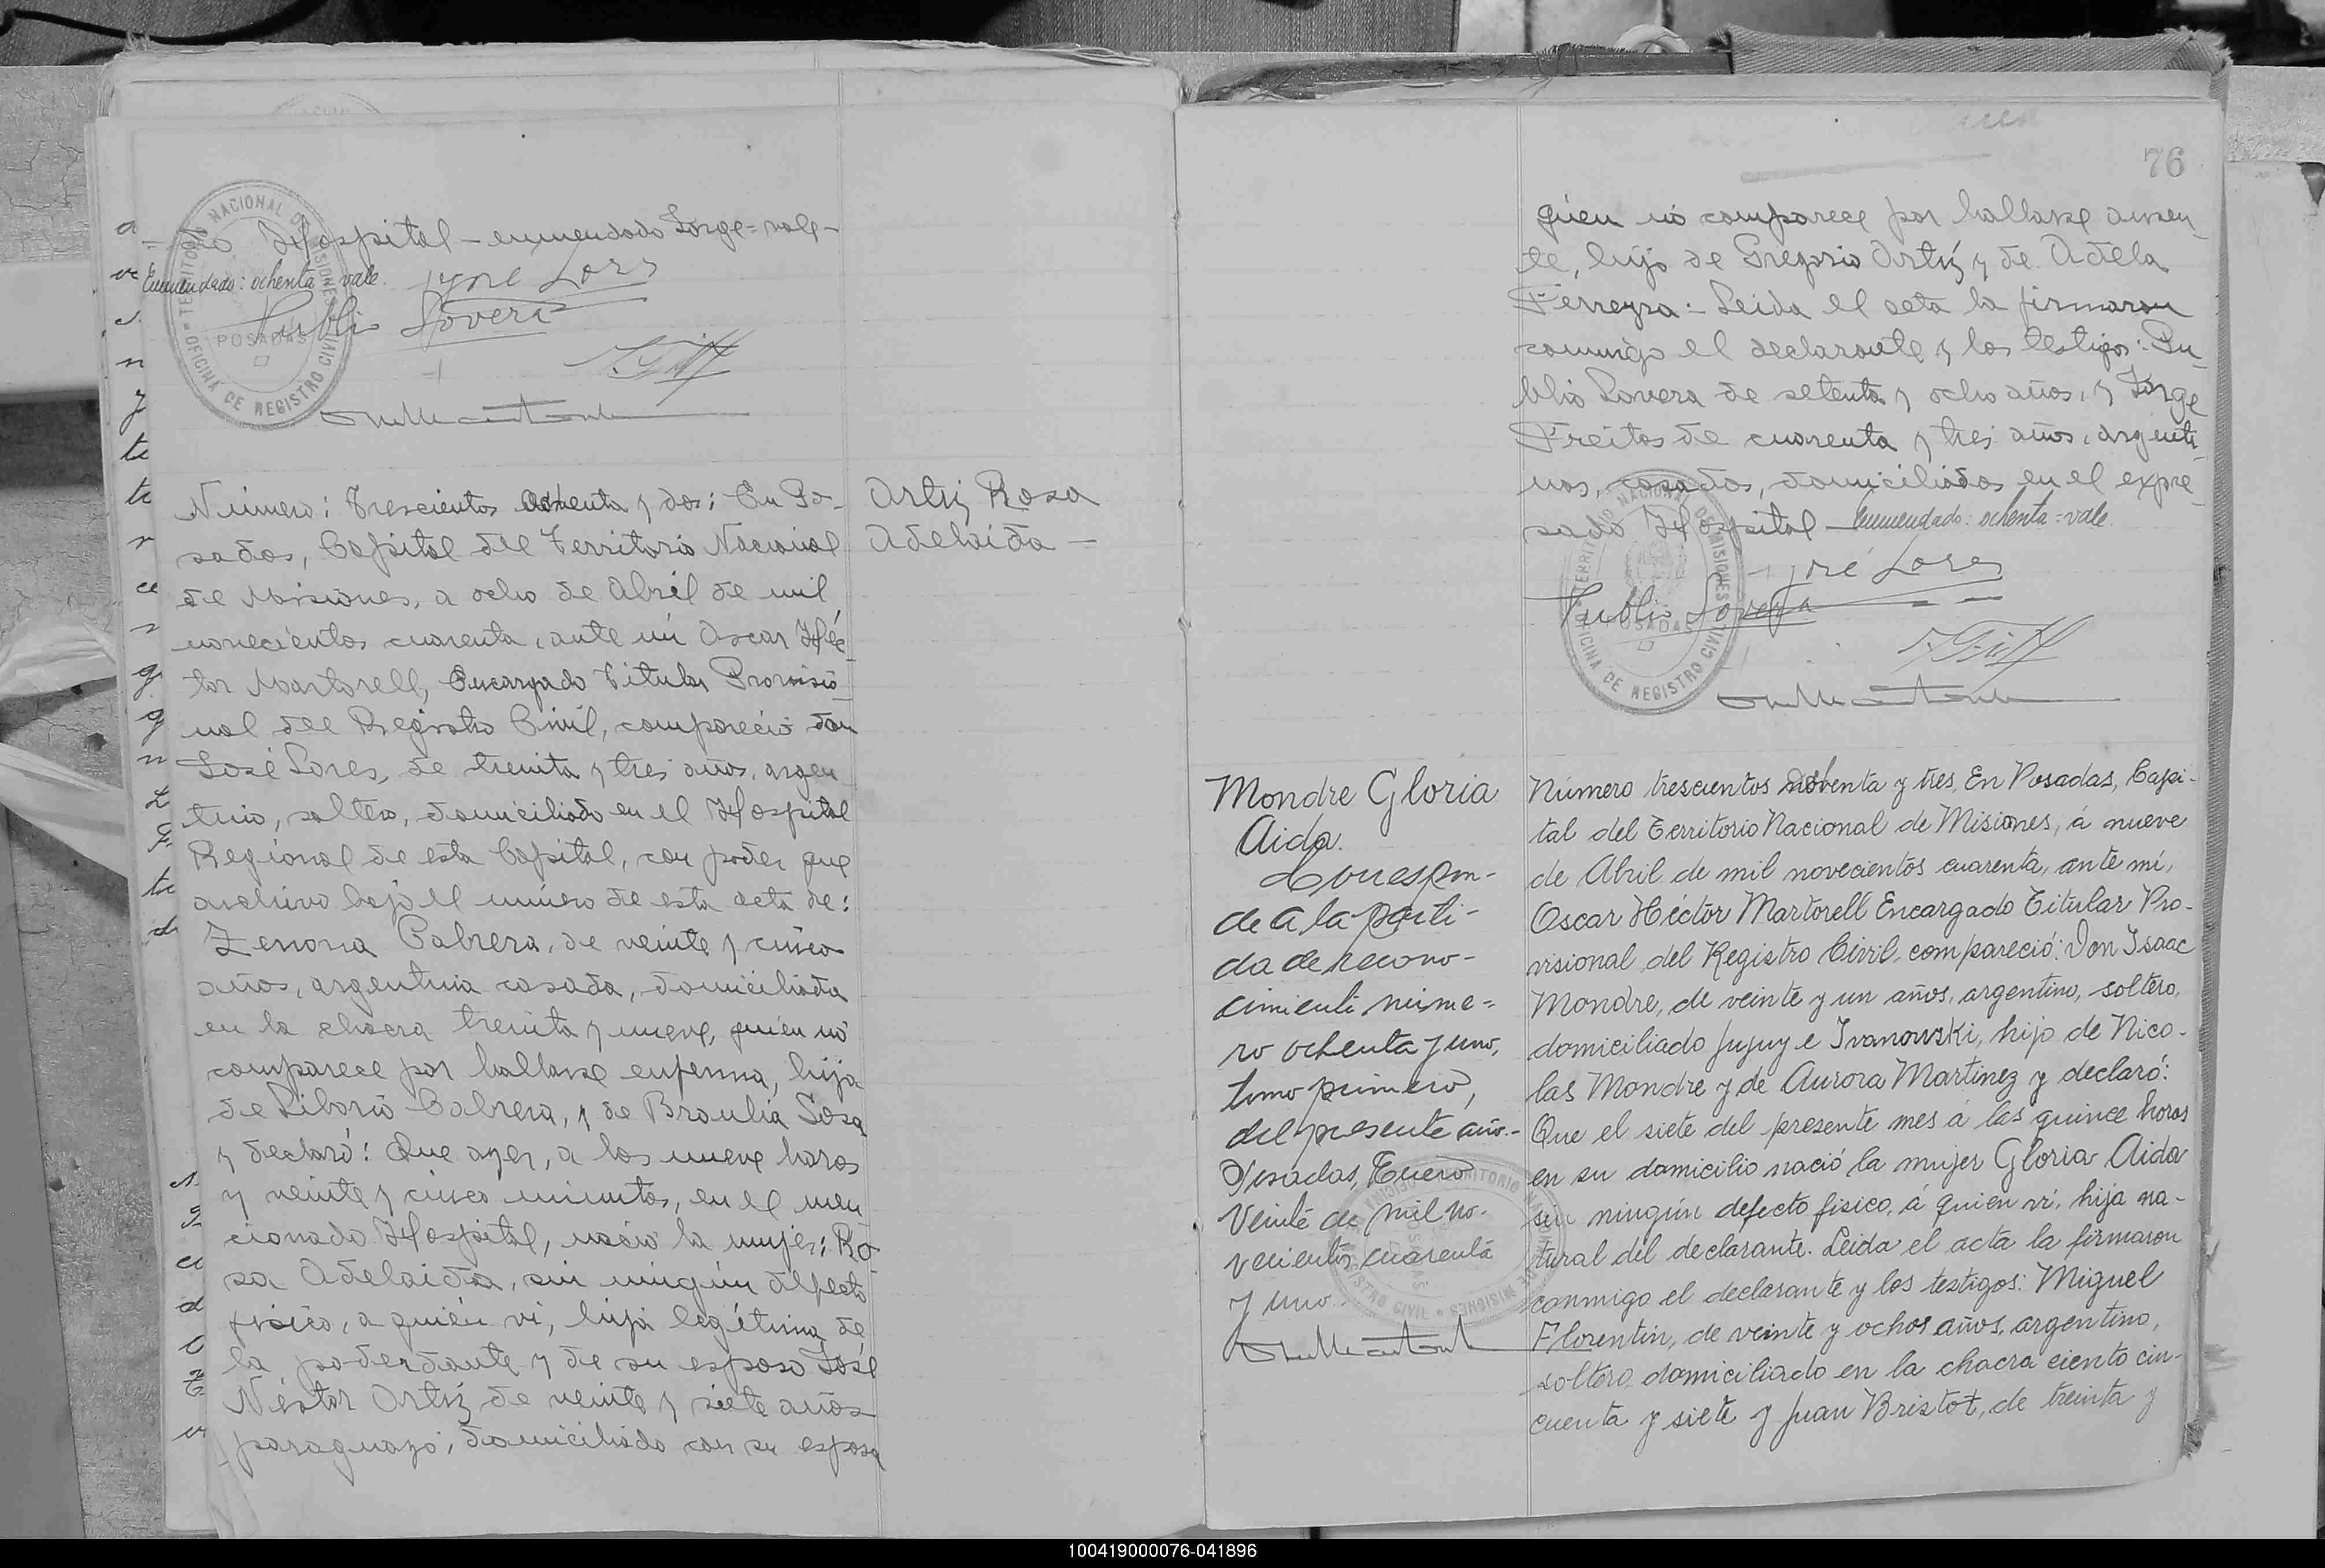 do Hospital - enmendado Jorge = vale -
Enmendado: ochenta = vale.
José Lores
Publio Lovera
TERRITORIO NACIONAL DE MISIONES
POSADAS
OFICINA DE REGISTRO CIVIL
Número: Trescientos ochenta y dos: En Po-
sadas, Capital del Territorio Nacional
de Misiones, a ocho de Abril de mil
novecientos cuarenta, ante mí Oscar Héc-
tor Martorell, Encargado Titular Provisio-
nal del Registro Civil, compareció don
José Lores, de treinta y tres años, argen
tino, soltero, domiciliado en el Hospital
Regional de esta Capital, con poder que
archivo bajo el número de esta acta de:
Zenona Cabrera, de veinte y cinco
años, argentina casada, domiciliada
en la chacra treinta y nueve, quién nó
comparece por hallarse enferma, hija
de Liborio Cabrera, y de Braulia Sosa
y declaró: Que ayer, a las nueve horas
y veinte y cinco minutos, en el men
cionado Hospital, nació la mujer: Ro-
sa Adelaida, sin ningún defecto
físico, a quién vi, hija legítima de
la poderdante y de su esposo José
Néstor Ortíz de veinte y siete años
paraguayo, domiciliado con su esposa
Ortíz Rosa
Adelaida -
76
quien nó comparece por hallarse ausen-
te, hijo de Gregorio Ortíz y de Adela
Ferreyra: - Leida el acta la firmaron
conmigo el declarante y los testigos: Pu-
blio Lovera de setenta y ocho años, y Jorge
Freitas de cuarenta y tres años, argenti-
nos, casados, domiciliados en el expre-
sado Hospital - Enmendado: ochenta = vale.
José Lores
Publio Lovera
TERRITORIO NACIONAL DE MISIONES
POSADAS
OFICINA DE REGISTRO CIVIL
Mondre Gloria
Aida.
Correspon-
de a la parti-
da de recono-
cimiento núme-
ro ochenta y uno,
tomo primero,
del presente año.-
Posadas, Enero
veinte de mil no-
vecientos cuarenta
y uno.
Número trescientos ochenta y tres, En Posadas, Capi-
tal del Territorio Nacional de Misiones, á nueve
de Abril de mil novecientos cuarenta, ante mí,
Oscar Héctor Martorell Encargado Titular Pro-
visional del Registro Civil, compareció: Don Isaac
Mondre, de veinte y un años, argentino, soltero,
domiciliado Jujuy e Ivanowski, hijo de Nico-
las Mondre y de Aurora Martinez y declaró:
Que el siete del presente mes á las quince horas
en su domicilio nació la mujer Gloria Aida
sin ningún defecto fisico, á quien vi, hija na-
tural del declarante. Leida el acta la firmaron
conmigo el declarante y los testigos: Miguel
Florentin, de veinte y ochos años, argentino,
soltero domiciliado en la chacra ciento cin-
cuenta y siete y Juan Bristot, de treinta y
100419000076-041896